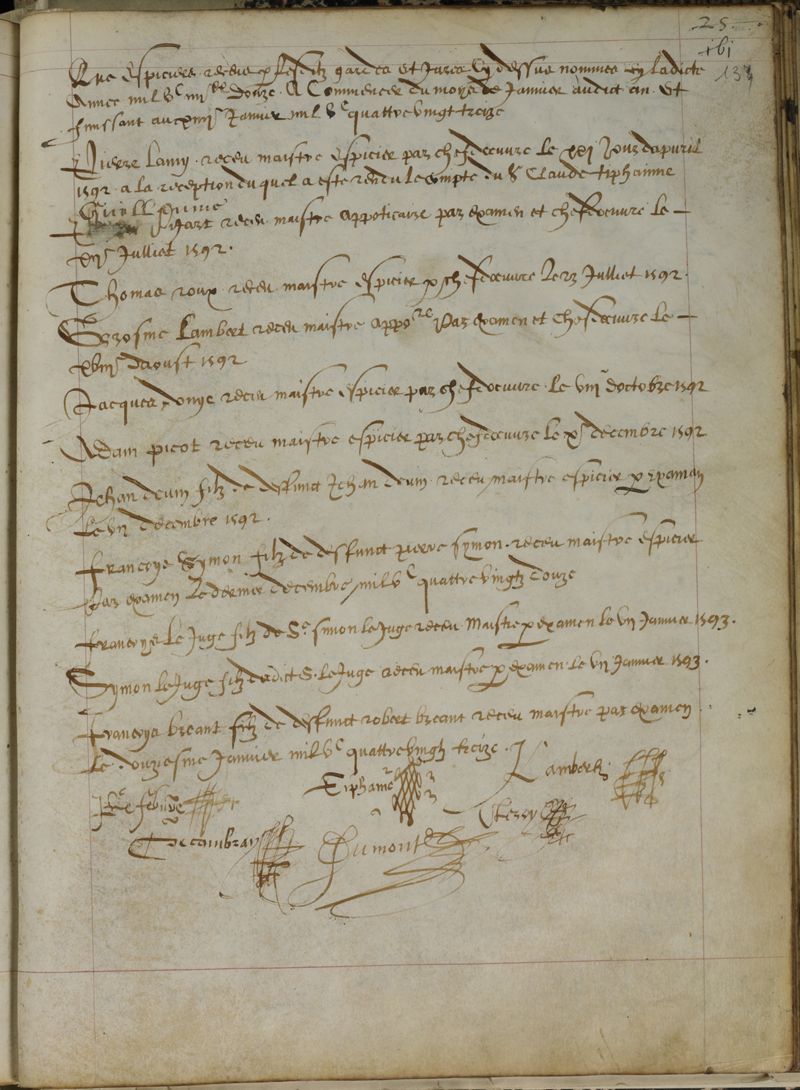 25
xbj
133
espiciers receuz p lesditz gardes et Jurez cy dessus nommez en ladicte
annee mil Vc iiiixx douze. A Commencer du moys de Janvier audict an. Et
finissant au xiiije Janvier mil Vc quattre vingt treize
Pierre Lamy. receu maistre Espicier par chefdoeuvre le xxj Jour dapvril
1592. a la reception duquel a esté rendu le compte du Sr Claude tiphainne
Guyllaume
receu maistre appoticaire par examen et chefdoeuvre le —
Julliet 1592.
Thomas roux receu maistre espicier p chefdoeuvre le Julliet 1592.
Lambert receu maistre appore Par examen et Chefdoeuvre le —
xbiije daoust 1592
Jacques receu maistre espicier par chefdoeuvre. le viije doctobre 1592
Adam picot receu maistre espicier par chefdoeuvre le xe decembre 1592
Jehan devin filz de deffunct Jehan devin receu maistre espicier p Examen
Le vij decembre 1592.
Francoys Symon filz de deffunct pierre symon. receu maistre espicier
Par examen Le dernier decembre mil Vc quattre vingtz douze
Francoys Le Juge filz de Sre simon le Juge receu Maistre p examen le vij Janvier 1593.
Symon le Juge filz dudict S. le Juge receu maistre p examen. le vij Janvier 1593.
Francoys breant filz de deffunct robert breant receu maistre par examen
Le douzesme Janvier mil Vc quattre vingtz treize.
Lambert
Tiphaine
Decambray
Dumont